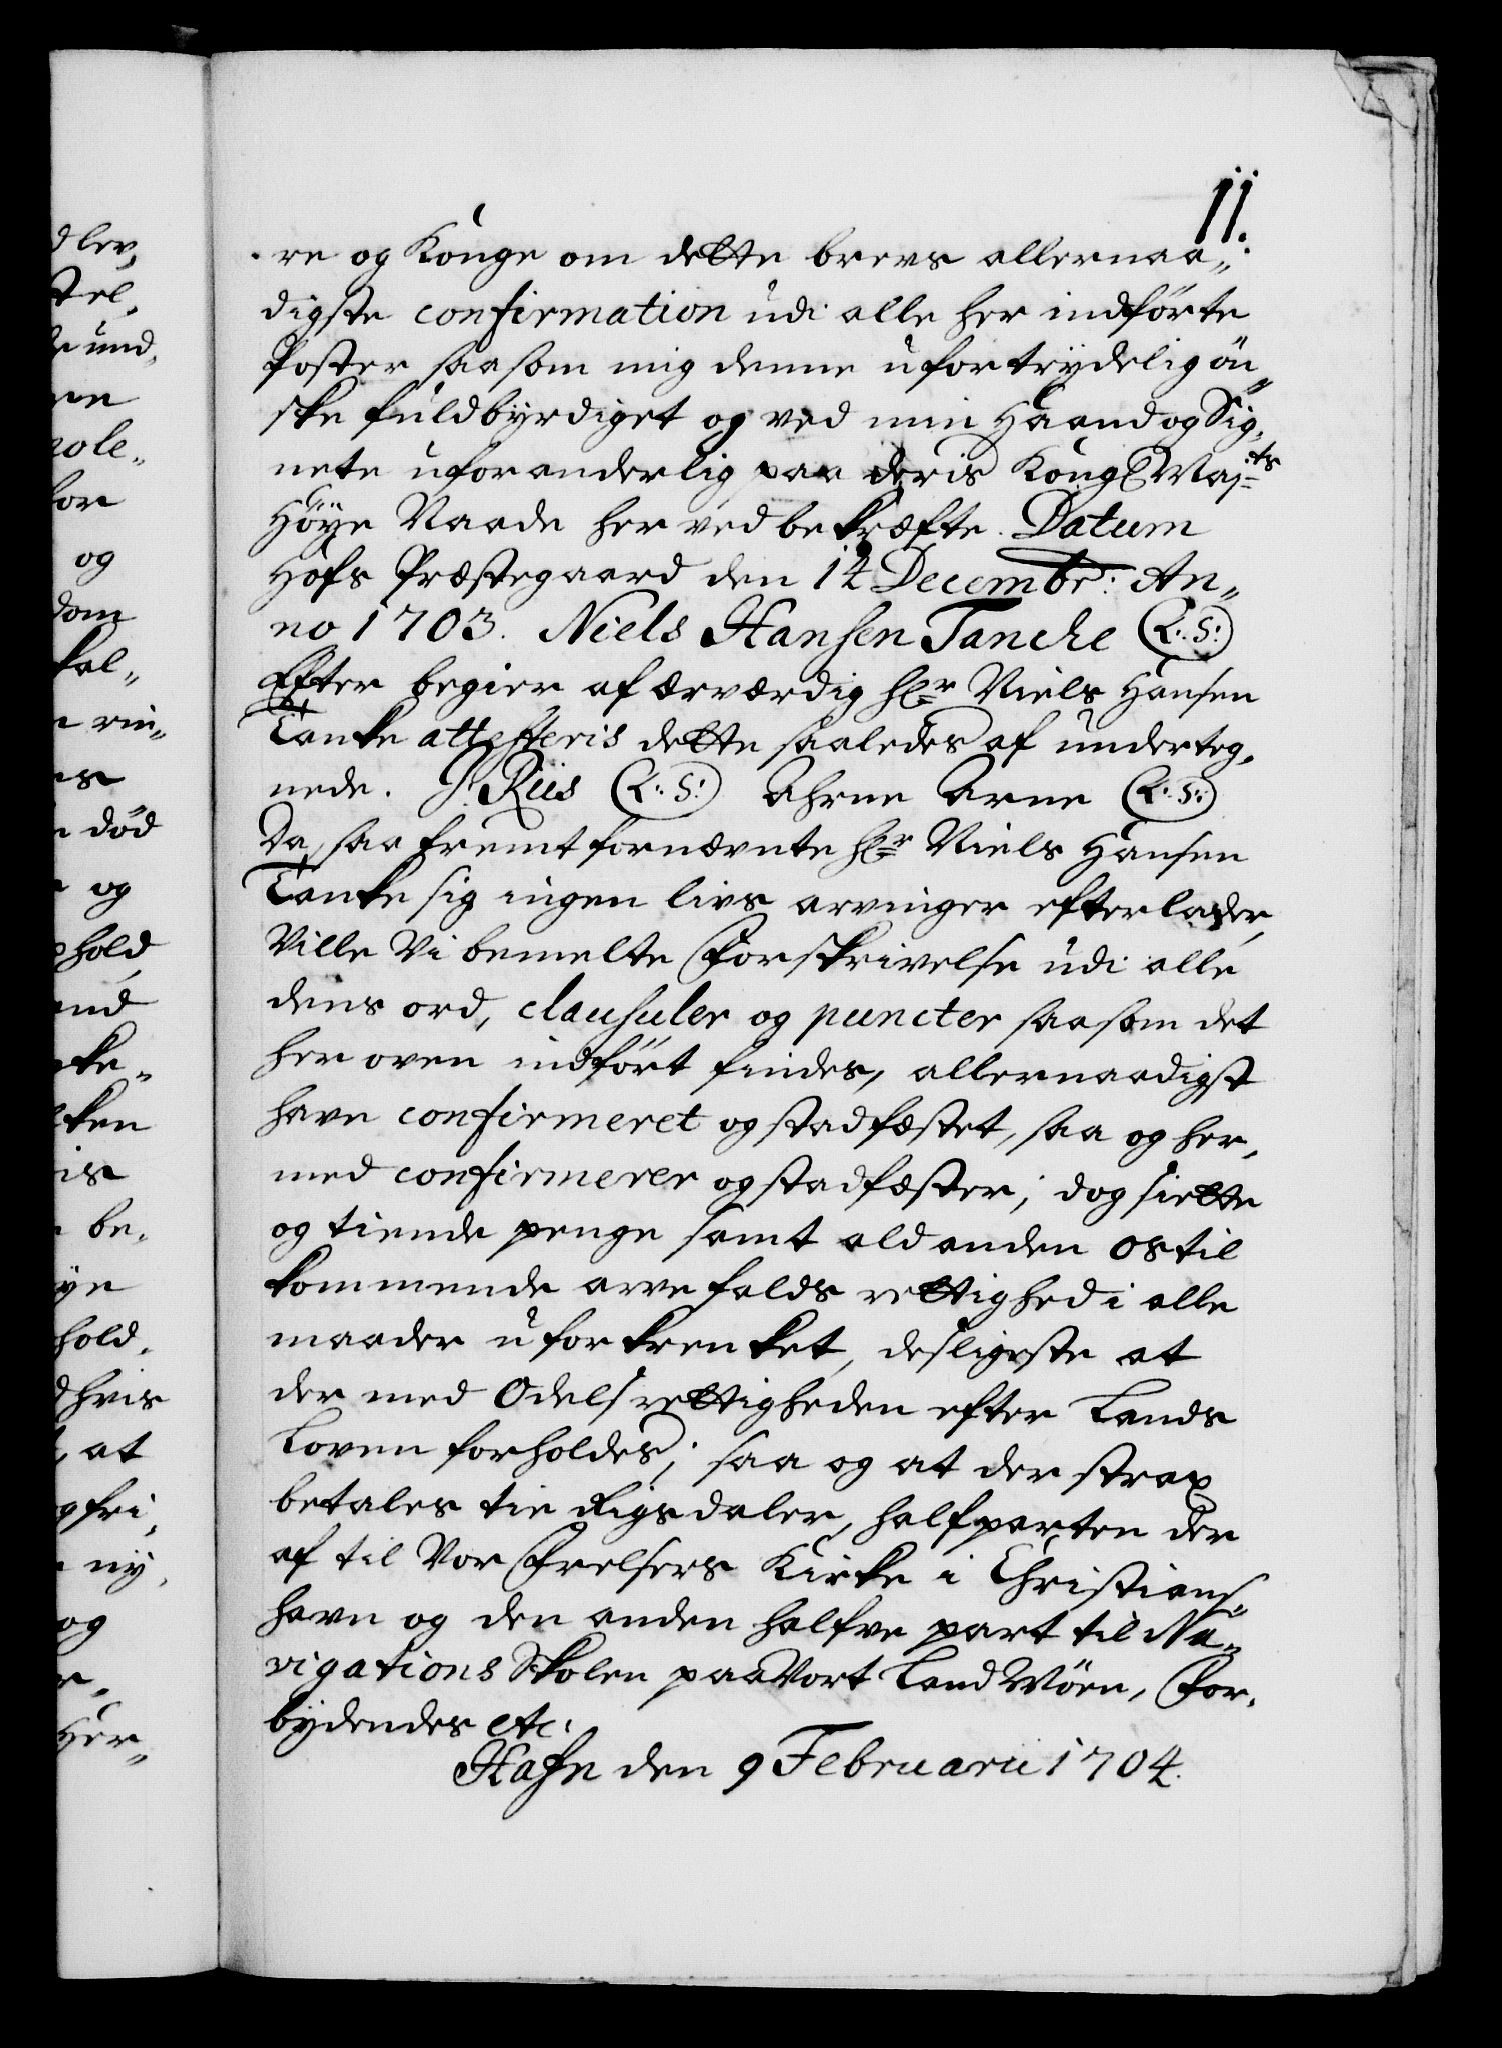 11.
re og Konge om dette brevs allernaa„
digste confirmation udi alle her indførte
Poster saasom mig denne ufortrydelig øn„
ske fuldbyrdiget og ved min Haand og Sig„
nete uforanderlig paa deris Kongl Maj:ts
Høye Naade her ved bekræfte. Datum
Hofs Præstegaard den 14 Decembr: An„
no 1703. Niels Hansen Tanche (L: S:)
Efter begier af ærværdig Hr Niels Hansen
Tanke attesteris dette saaledes af underteg„
nede. J: Riis (L: S:) Ahrne Arne (L: S:)
Da, saa fremt fornævnte Hr Niels Hansen
Tanke sig ingen livs arvinger efterlader,
Ville Vi bemelte Forskrivelse udi alle
dens ord, clausuler og puncter saasom det
her oven indført findes, allernaadigst
have confirmeret og stadfæstet, saa og her„
med confirmerer og stadfæster; dog siette
og tiende penge samt ald anden os til
kommende arvefalds rettighed i alle
maader uforkrenket, desligeste at
der med Odels rettigheden efter Lands
Loven forholdes; saa og at der strax
betales tie Rigsdaler, halfparten der
af til Vor Frelsers Kirke i Christians„
havn og den anden halfve part til Na„
vigations Skolen paa Vort Land Møen, For„
bydendes etc:
Hafn den 9 Februarii 1704.
dlev,
stel„
und„
nole„
for
og
dom
kal„
rin„
død
og
hold
end
ke„
ken
is
be„
ye
hold„
hvis
at
fri„
ny„
og
Her„